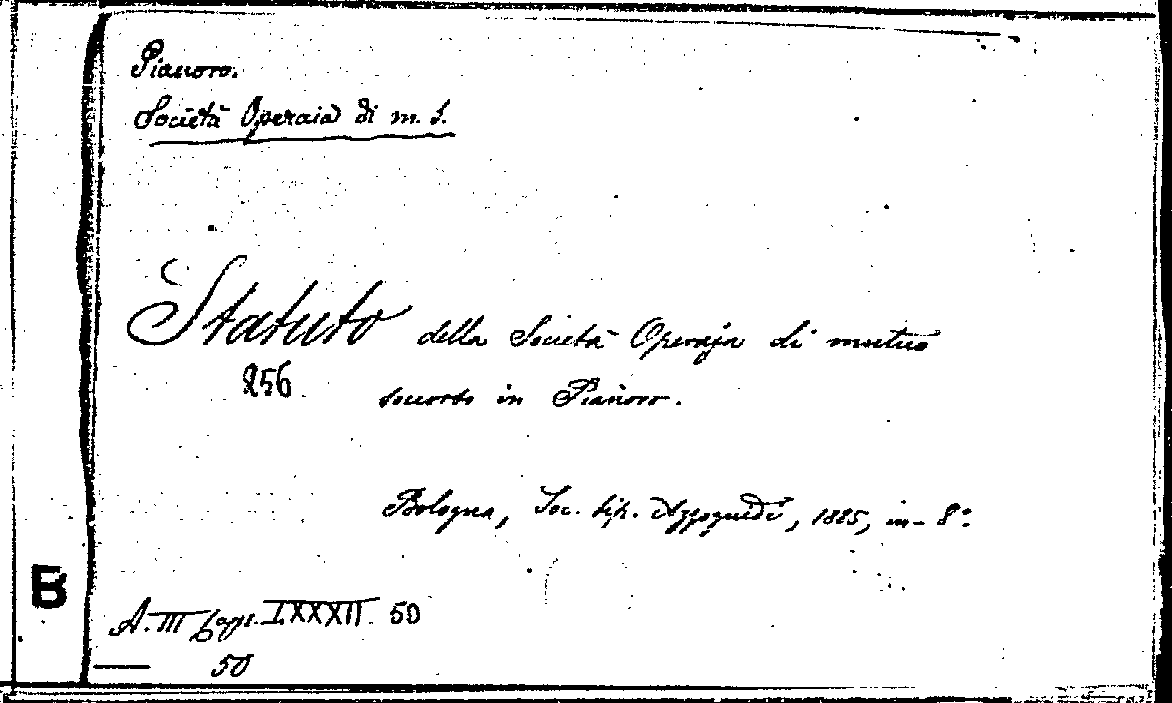 Pianoro.
Società Operaia di m. s.
Statuto della Società Operaja di mutuo
256
soccorso in Pianoro.
Bologna, Soc. tip. Azzoguidi, 1885, in-8°.
B
A. III Caps. LXXXII. 50
50